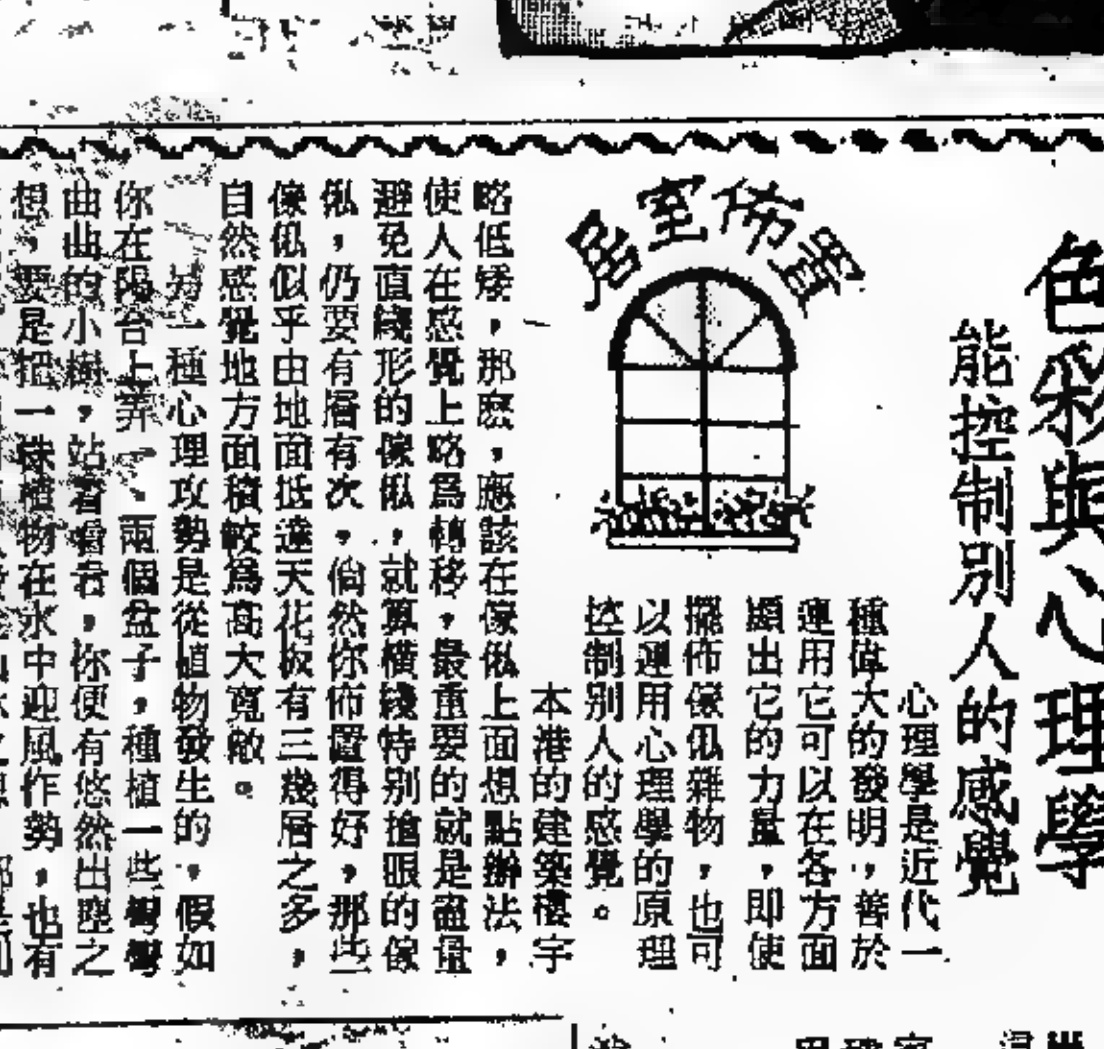 色彩與心理學
能控制別人的感覺
居室佈置
心理學是近代一
種偉大的發明，善於
運用它可以在各方面
顯出它的力量，即使
擺佈傢俬雜物，也可
以運用心理學的原理
控制別人的感覺。
本港的建築樓宇
略低矮，那麽，應該在傢俬上面想點辦法，
使人在感覺上略爲轉移，最重要的就是盡量
避免直綫形的傢俬，就算橫綫特别搶眼的傢
俬，仍要有層有次，倘然你佈置得好，那些
傢俬似乎由地面抵達天花板有三幾層之多，
自然感覺地方面積較爲高大寬敞。
另一種心理攻勢是從植物發生的，假如
你在陽台上弄一、兩個盆子，種植一些彎彎
曲曲的小樹，站着看去，你便有悠然出塵之
想，要是把一株植物在水中迎風作勢，也有